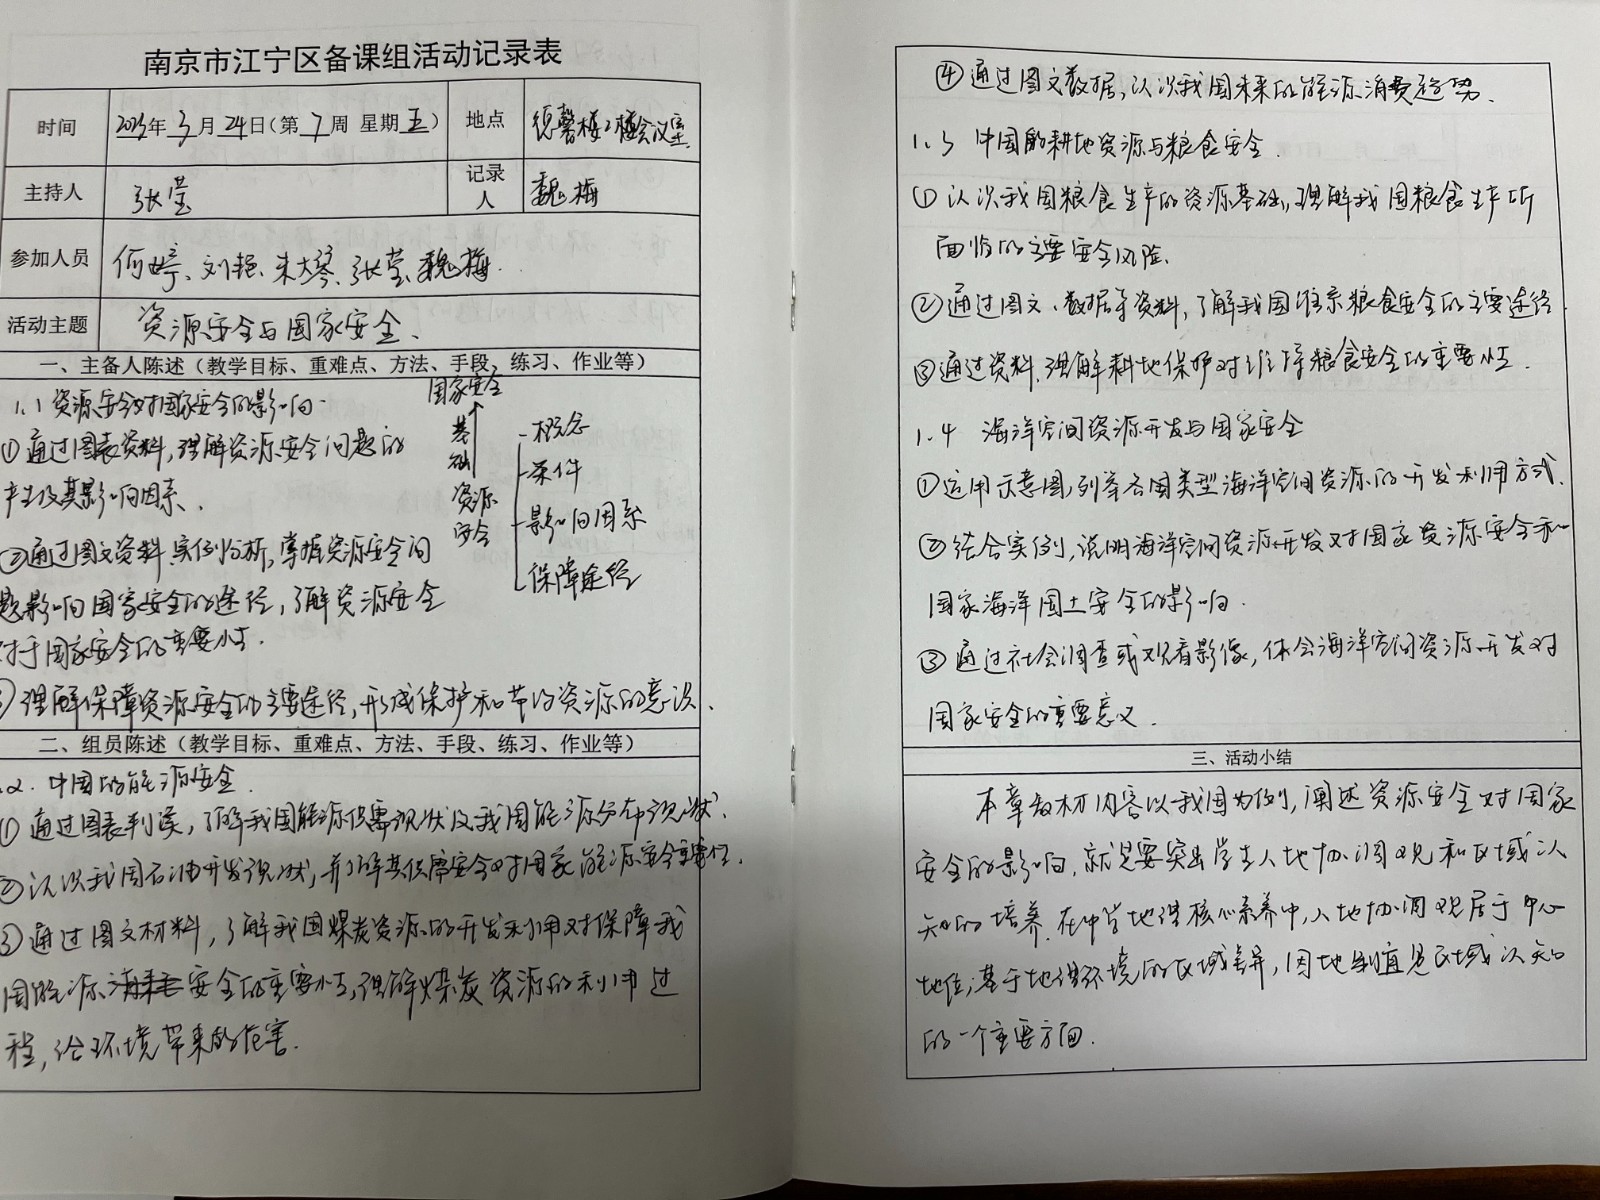 南京市江宁区备课组活动记录表
时间 2023年3月24日(第7周 星期五) 地点 德馨楼2楼会议室
主持人 张莹 记录人 魏梅
参加人员 何婷、刘艳、朱大琴、张莹、魏梅.
活动主题 资源安全与国家安全.
一、主备人陈述(教学目标、重难点、方法、手段、练习、作业等)
1.1 资源安全对国家安全的影响.
①通过图表资料,理解资源安全问题的
产生及其影响因素.
②通过图文资料、实例分析,掌握资源安全问
题影响国家安全的途径,了解资源安全
对于国家安全的重要性.
③理解保障资源安全的主要途径,形成保护和节约资源的意识.
国家安全
基础
资源安全
概念
条件
影响因素
保障途径
二、组员陈述(教学目标、重难点、方法、手段、练习、作业等)
1.2. 中国的能源安全.
①通过图表判读,了解我国能源供需现状及我国能源分布现状.
②认识我国石油开发现状,并了解其供应安全对国家能源安全重要性.
③通过图文材料,了解我国煤炭资源的开发利用对保障我
国能源安全的重要性,理解煤炭资源的利用过
程,给环境带来的危害.
④通过图文数据,认识我国未来的能源消费趋势.
1.3 中国的耕地资源与粮食安全.
①认识我国粮食生产的资源基础,理解我国粮食生产所
面临的主要安全风险.
②通过图文、数据等资料,了解我国维系粮食安全的主要途径.
③通过资料,理解耕地保护对维持粮食安全的重要性.
1.4 海洋空间资源开发与国家安全
①运用示意图,列举各国类型海洋空间资源的开发利用方式.
②结合实例,说明海洋空间资源开发对国家资源安全和
国家海洋国土安全的影响.
③通过社会调查或观看影像,体会海洋空间资源开发对
国家安全的重要意义.
三、活动小结
本章教材内容以我国为例,阐述资源安全对国家
安全的影响,就是要突出学生人地协调观和区域认
知的培养.在中学地理核心素养中,人地协调观居于中心
地位;基于地理环境的区域差异,因地制宜是区域认知
的一个重要方面.